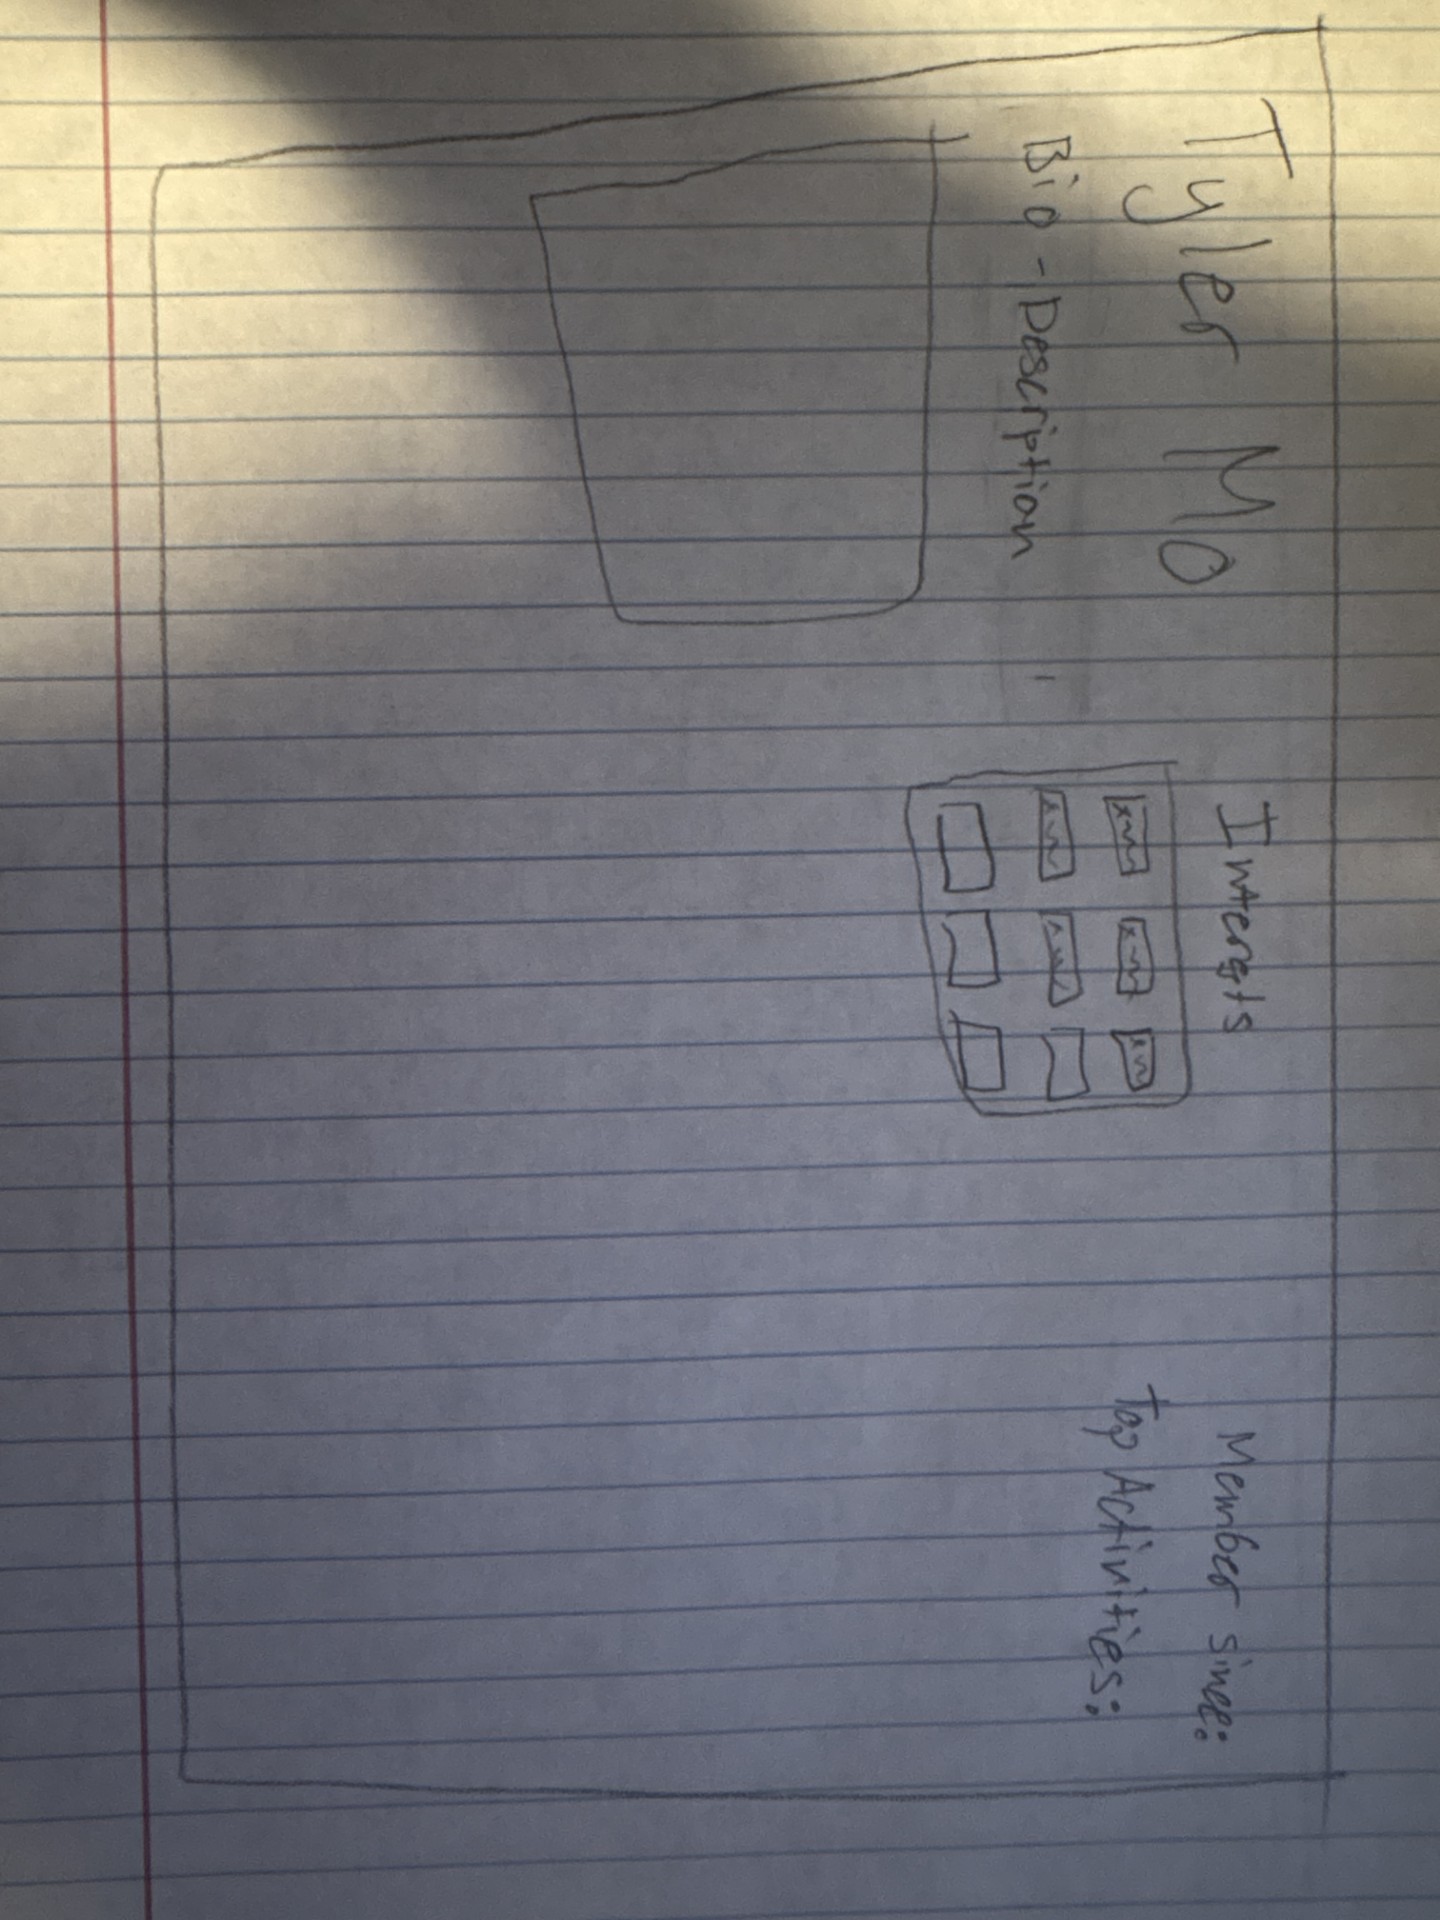 Tyler Mo
Bio - Description
Interests
Member since:
Top Activities: